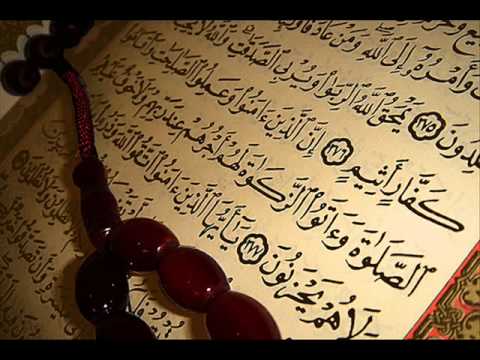 وَأَمْرُهُۥٓ إِلَى ٱللَّهِ وَمَنْ عَادَ
لِدُونَ ٢٧٥ يَمْحَقُ ٱللَّهُ ٱلرِّبَوٰا۟ وَيُرْبِى ٱلصَّدَقَٰتِ وَٱللَّهُ لَا يُحِبُّ
كَفَّارٍ أَثِيمٍ ٢٧٦ إِنَّ ٱلَّذِينَ ءَامَنُوا۟ وَعَمِلُوا۟ ٱلصَّٰلِحَٰتِ وَأَقَامُوا۟
ٱلصَّلَوٰةَ وَءَاتَوُا۟ ٱلزَّكَوٰةَ لَهُمْ أَجْرُهُمْ عِندَ رَبِّهِمْ وَلَا خَوْفٌ عَلَيْهِمْ
لَا هُمْ يَحْزَنُونَ ٢٧٧ يَٰٓأَيُّهَا ٱلَّذِينَ ءَامَنُوا۟ ٱتَّقُوا۟ ٱللَّهَ وَذَرُوا۟